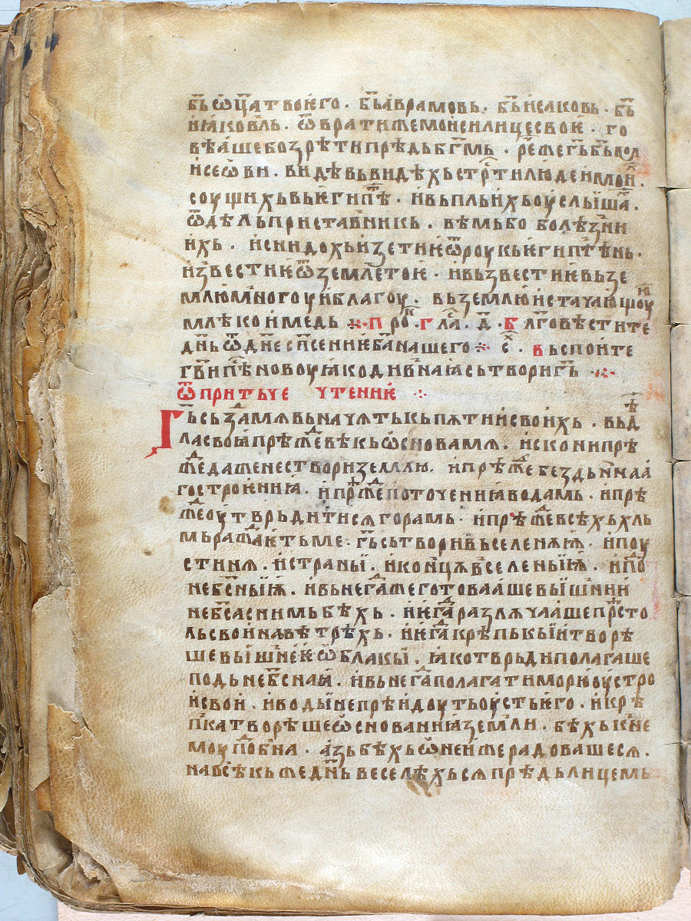 б҃ь ѡц҃а твоѥго · б҃ь авраамовь · б҃ь исаковь · б҃ь
иꙗковль · ѿврати же моиси лице свое · го
вѣаше бо зрѣти прѣдь б҃гмь · рⷱ҇е же г҃ь б҃ь кь
моисеѡви · видѣвь видѣхь стрⷭ҇ть людеи моиⷯ ·
соущихь вь еги́птѣ · и вьпль ихь оуслышаⷯ ·
ѿ дѣль приставникь · вѣмь бо болѣзни
ихь · и снидохь изети ѥ ѿ роукь египтѣнь ·
извести ѥ ѿ земле тое · и вьзвести ѥ вь зе
млю многоу и благоу · вь землю истачающоую
млѣко и медь ·:· прⷪ҇ · глⷭ҇а · д҃ · бл҃говѣстите
дн҃ь ѿ дн҃е сп҃сение б҃а нашего ·:· сⷯ · вьспоите
г҃ви пѣ нову ꙗко дивнаꙗ сьтвори г҃ь ·:·
ѿ притьче чтение ·:·
Г҃ь сьзда мя вь начятькь пятии своихь · вь дѣ
ла своꙗ прѣжⷣе вѣкь ѡснова мя · искони прѣ
жⷣе даже не створи землю · и прѣжⷣе бездьнна
го строениꙗ · и прѣжⷣе поточениꙗ водамь · и прѣ
жⷣе оутврьдитися горамь · и прѣжⷣе всѣхь хль
мь ражⷣает ме · г҃ь створи вьселеняѧ · и поу
стиня · и страны · и конця вселеныѧ · и по
неб҃сныѧ · и вьнегⷣа же готоваше вышнии
неб҃са с нимь бѣхь · и егⷣа разлячааше прⷭ҇то
ль свои на вѣтрѣхь · и егⷣа крѣпькы твор
ше вышнее ѡблакы · ꙗко тврьди полагаше
подьнеб҃снаꙗ · и вьнегⷣа полагати морю оустро
и свои · и воды не прѣидоуть оусть его · и крѣ
пка творѣше ѡснованиꙗ земли · бѣхь к не
моу пⷪ҇бна · азь бѣхь ѡ неиже радовашеся ·
на всѣкь же дн҃ь веселѣхься прѣдь лицемь